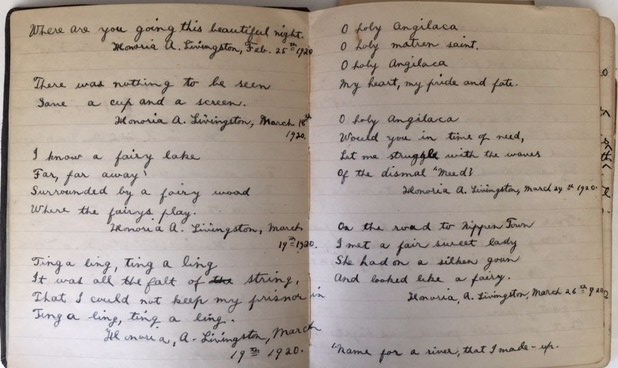 Where are you going this beautiful night.
Honoria A. Livingston, Feb. 25th 1920
There was nothing to be seen
Save a cup and a screen.
Honoria A. Livingston, March 18th
1920.
I know a fairy lake
Far, far away!
Surrounded by a fairy wood
Where the fairys play.
Honoria A. Livingston, March
19th 1920.
Ting a ling, ting a ling
It was all the falt of the string,
That I could not keep my prisnor in
Ting a ling, ting a ling.
Honoria, A. Livingston, March
19th 1920.
O holy Angilaca
O holy matren saint.
O holy Angilaca
My heart, my pride and fate.
O holy Angilaca
Would you in time of need,
Let me struggle with the waves
Of the dismal 'Meed?
Honoria A. Livingston, March 24th 1920.
On the road to Nippen Town
I met a fair sweet lady
She had on a silken goun
And looked like a fairy.
Honoria, A. Livingston, March 26th 1920
'Name for a river, that I made-up.